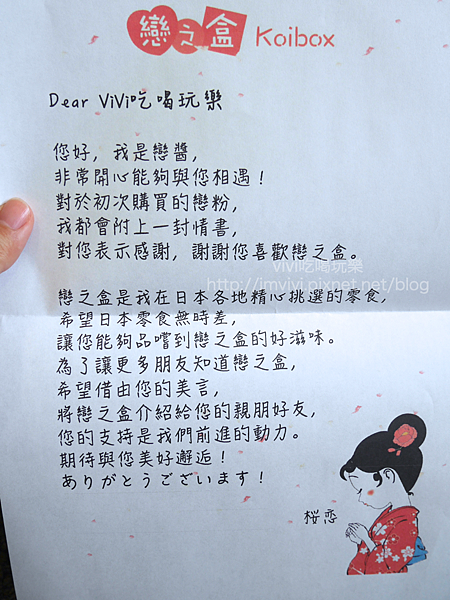 戀之盒 Koibox
Dear ViVi吃喝玩樂
您好，我是戀醬，
非常開心能夠與您相遇！
對於初次購買的戀粉，
我都會附上一封情書，
對您表示感謝，謝謝您喜歡戀之盒。
ViVi吃喝玩樂
http://imvivi.pixnet.net/blog
戀之盒是我在日本各地精心挑選的零食，
希望日本零食無時差，
讓您能夠品嚐到戀之盒的好滋味。
為了讓更多朋友知道戀之盒，
希望借由您的美言，
將戀之盒介紹給您的親朋好友，
您的支持是我們前進的動力。
期待與您美好邂逅！
ありがとうございます！
桜恋